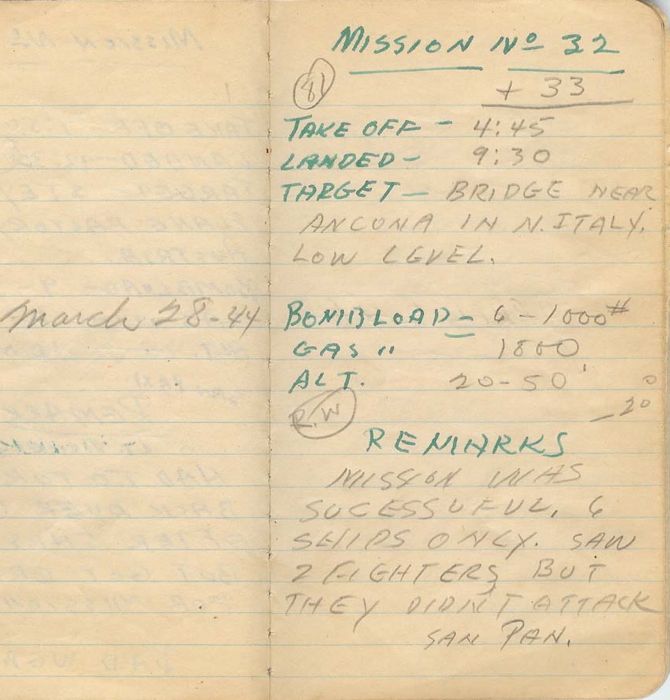 MISSION No 32
81
+ 33
TAKE OFF - 4:45
LANDED - 9:30
TARGET - BRIDGE NEAR
ANCONA IN N. ITALY.
LOW LEVEL.
March 28-44
BOMBLOAD - 6 - 1000#
GAS " 1800
ALT. 20-50'
R.W
REMARKS
MISSION WAS
SUCESSUFUL. 6
SHIPS ONLY. SAW
2 FIGHTERS BUT
THEY DIDN'T ATTACK
SAN PAN.